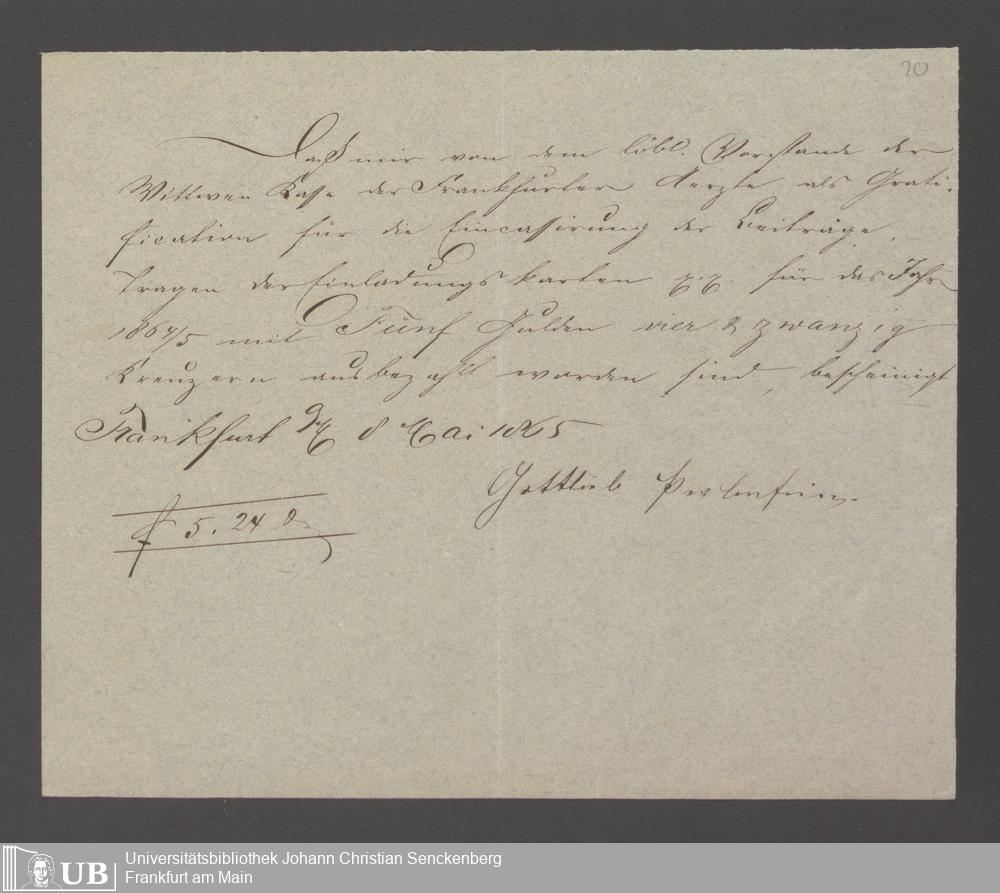 70
Daß mir von dem löbl. Vorstande der
Wittwen Kasse der Frankfurter Aerzte als Grati-
fication für die Einkassirung der Beiträge,
Tragen der Einladungskarten für das Jahr
1864/5 mit Fünf Gulden vier & zwanzig
Kreuzern ausbezahlt worden sind, bescheinigt
Frankfurt 8 Mai 1865
Gottlieb
f 5. 24
UB
Universitätsbibliothek Johann Christian Senckenberg
Frankfurt am Main